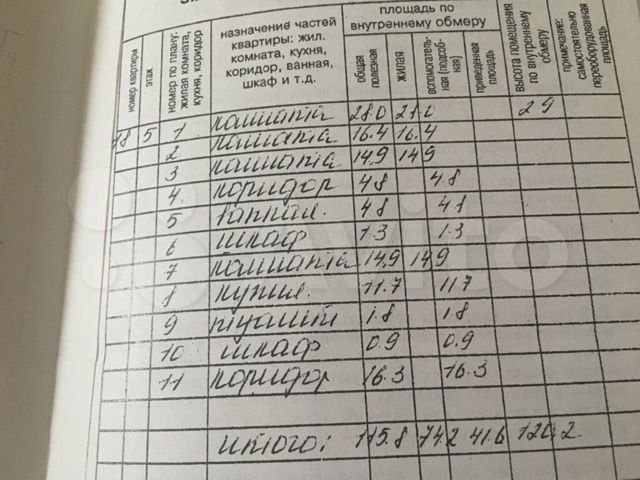 назначение частей квартиры: жил. комната, кухня, коридор, ванная, шкаф и т.д.
площадь по внутреннему обмеру
номер квартиры
этаж
номер по плану: жилая комната, кухня, коридор
общая полезная
жилая
вспомогатель-ная (подсоб-ная)
приведенная площадь
высота помещения по внутреннему обмеру
примечание: самостоятельно переоборудованная площадь
18 5 1 комната 28.0 28.0 2 9
2 комната 16.4 16.4
3 комната 14,9 14,9
4. коридор 4.8 4.8
5 ванная. 4.8 4.8
6 шкаф 1.3 1.3
7 комната 14,9 14,9
8 кухня. 11.7 11.7
9 туалет 1.8 1.8
10 шкаф 0.9 0.9
11 коридор 16.3 16.3
итого: 115.8 74.2 41.6
Avito